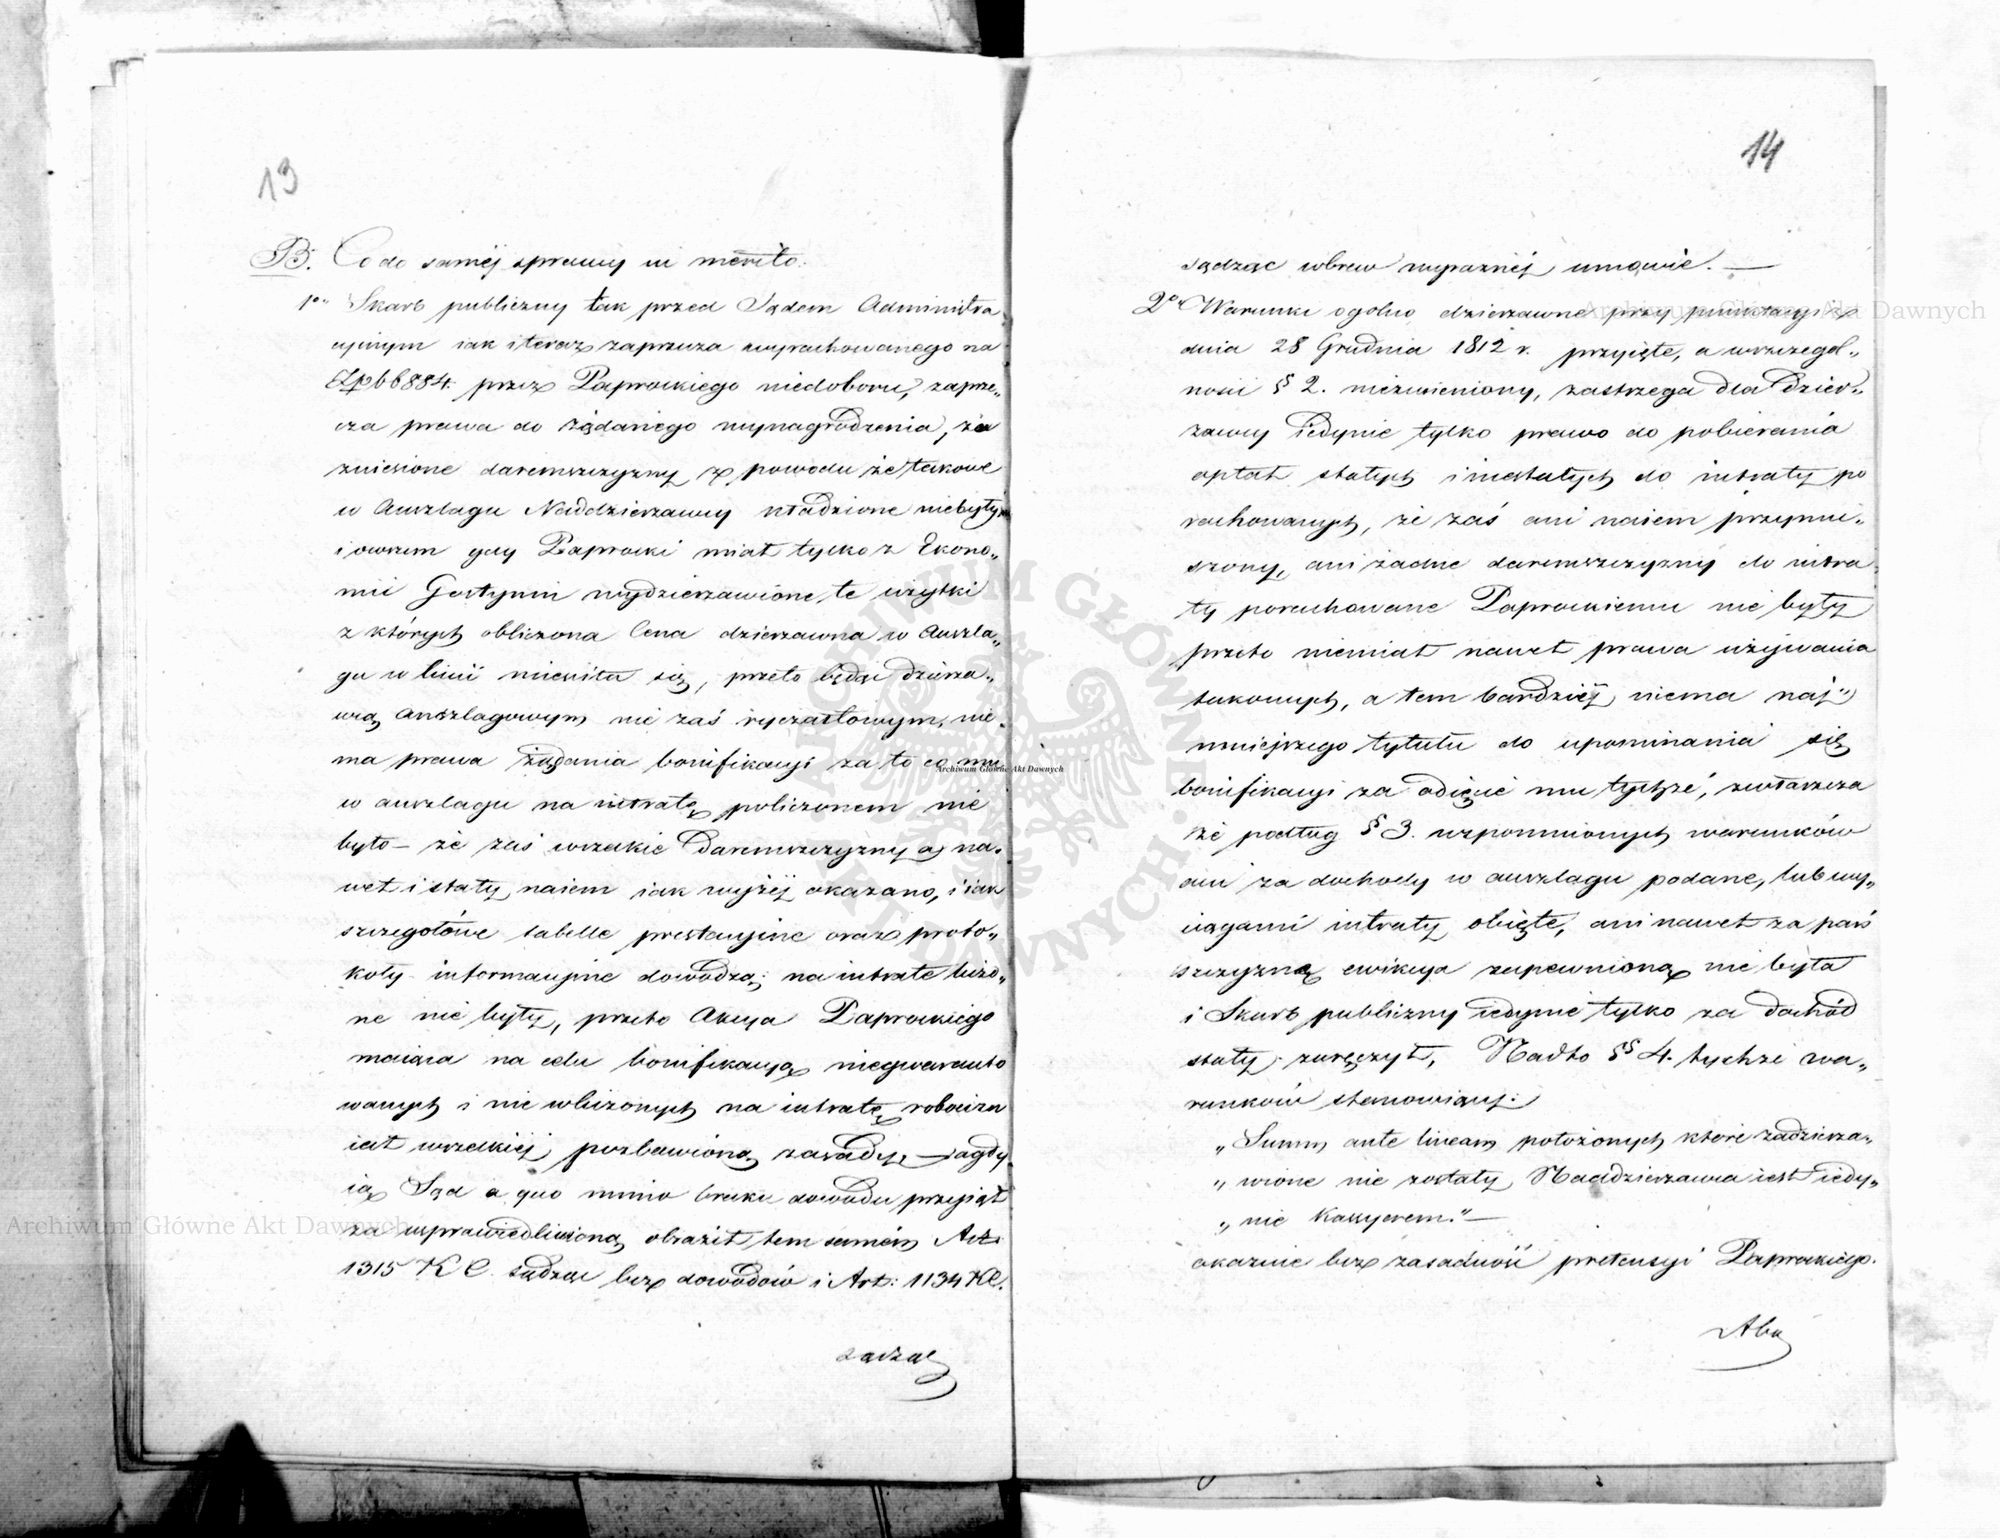 13
B. Co do saméj sprawy in merito.
1o Skarb publiczny tak przed Sądem Administra
cyinym iak i teraz zaprzecza wyrachowanego na
Złp 66884. przez Paprockiego niedoboru, zaprze„
cza prawa do żądanego wynagrodzenia, za
zniesione daremszczyzny z powodu że takowe
w Anszlagu Naddzierzawy kładzione niebyły
i owszem gdy Paprocki miał tylko z Ekono„
mii Gostynin wydzierzawione te użytki
z których obliczona Cena dzierzawna w Anszla„
gu w linii mieściła się, przeto będąc dzierza„
wcą anszlagowym nie zaś ryczałtowym, nie„
ma prawa żądania bonifikacyi za to co mu
w anszlagu na intratę policzonem nie
było — że zaś wszelkie daremszczyzny a na„
wet i stały naiem iak wyżéj okazano, i iak
szczegółowe tabelle prestacyine oraz proto„
koły informacyine dowodzą; na intratę liczo„
ne nie były, przeto Akcya Paprockiego
maiąca na celu bonifikacyą niegwaranto
wanych i nie wliczonych na intratę robocizn
iest wszelkiéj pozbawioną zasady, — a gdy
ią Sąd a quo mimo braku dowodu przyiął
za usprawiedliwioną obraził tem samém Art:
1315 K C. sądząc bez dowodów i Art: 1134 KC.
sądząc
14
sądząc wbrew wyraźnéj umowie. —
2o Warunki ogolno dzierzawne przy punktacyi z
dnia 28 Grudnia 1812 r. przyięte, a w szczegol„
ności § 2. niezmieniony, zastrzega dla Dzier„
zawcy iedynie tylko prawo do pobierania
opłat stałych i niestałych do intraty po
rachowanych, że zaś ani naiem przymu„
szony, ani żadne daremszczyzny do intra„
ty porachowane Paprockiemu nie były
przeto niemiał nawet prawa użijwania
takowych, a tem bardziéj niema naj„
mniejszego tytułu do upominania się
bonifikacyi za odięcie mu tychże, zwłaszcza
że podług § 3. wspomnionych warunków
ani za dochody w anszlagu podane, lub wy„
ciągami intraty obięte, ani nawet za pań
szczyznę ewikcya zapewnioną nie była
i Skarb publiczny iedynie tylko za dochód
stały zaręczył, Nadto §§ 4. tychże wa„
runków stanowiący:
„Summ ante lineam położonych które zadzierza„
„wione nie zostały, Naddzierzawca iest iedy„
„nie Kassyerem." —
okazuie bez zasadność pretensyi Paprockiego.
Aby
Archiwum Główne Akt Dawnych
Archiwum Główne Akt Dawnych
Archiwum Główne Akt Dawnych
ARCHIWUM GŁÓWNE AKT DAWNYCH